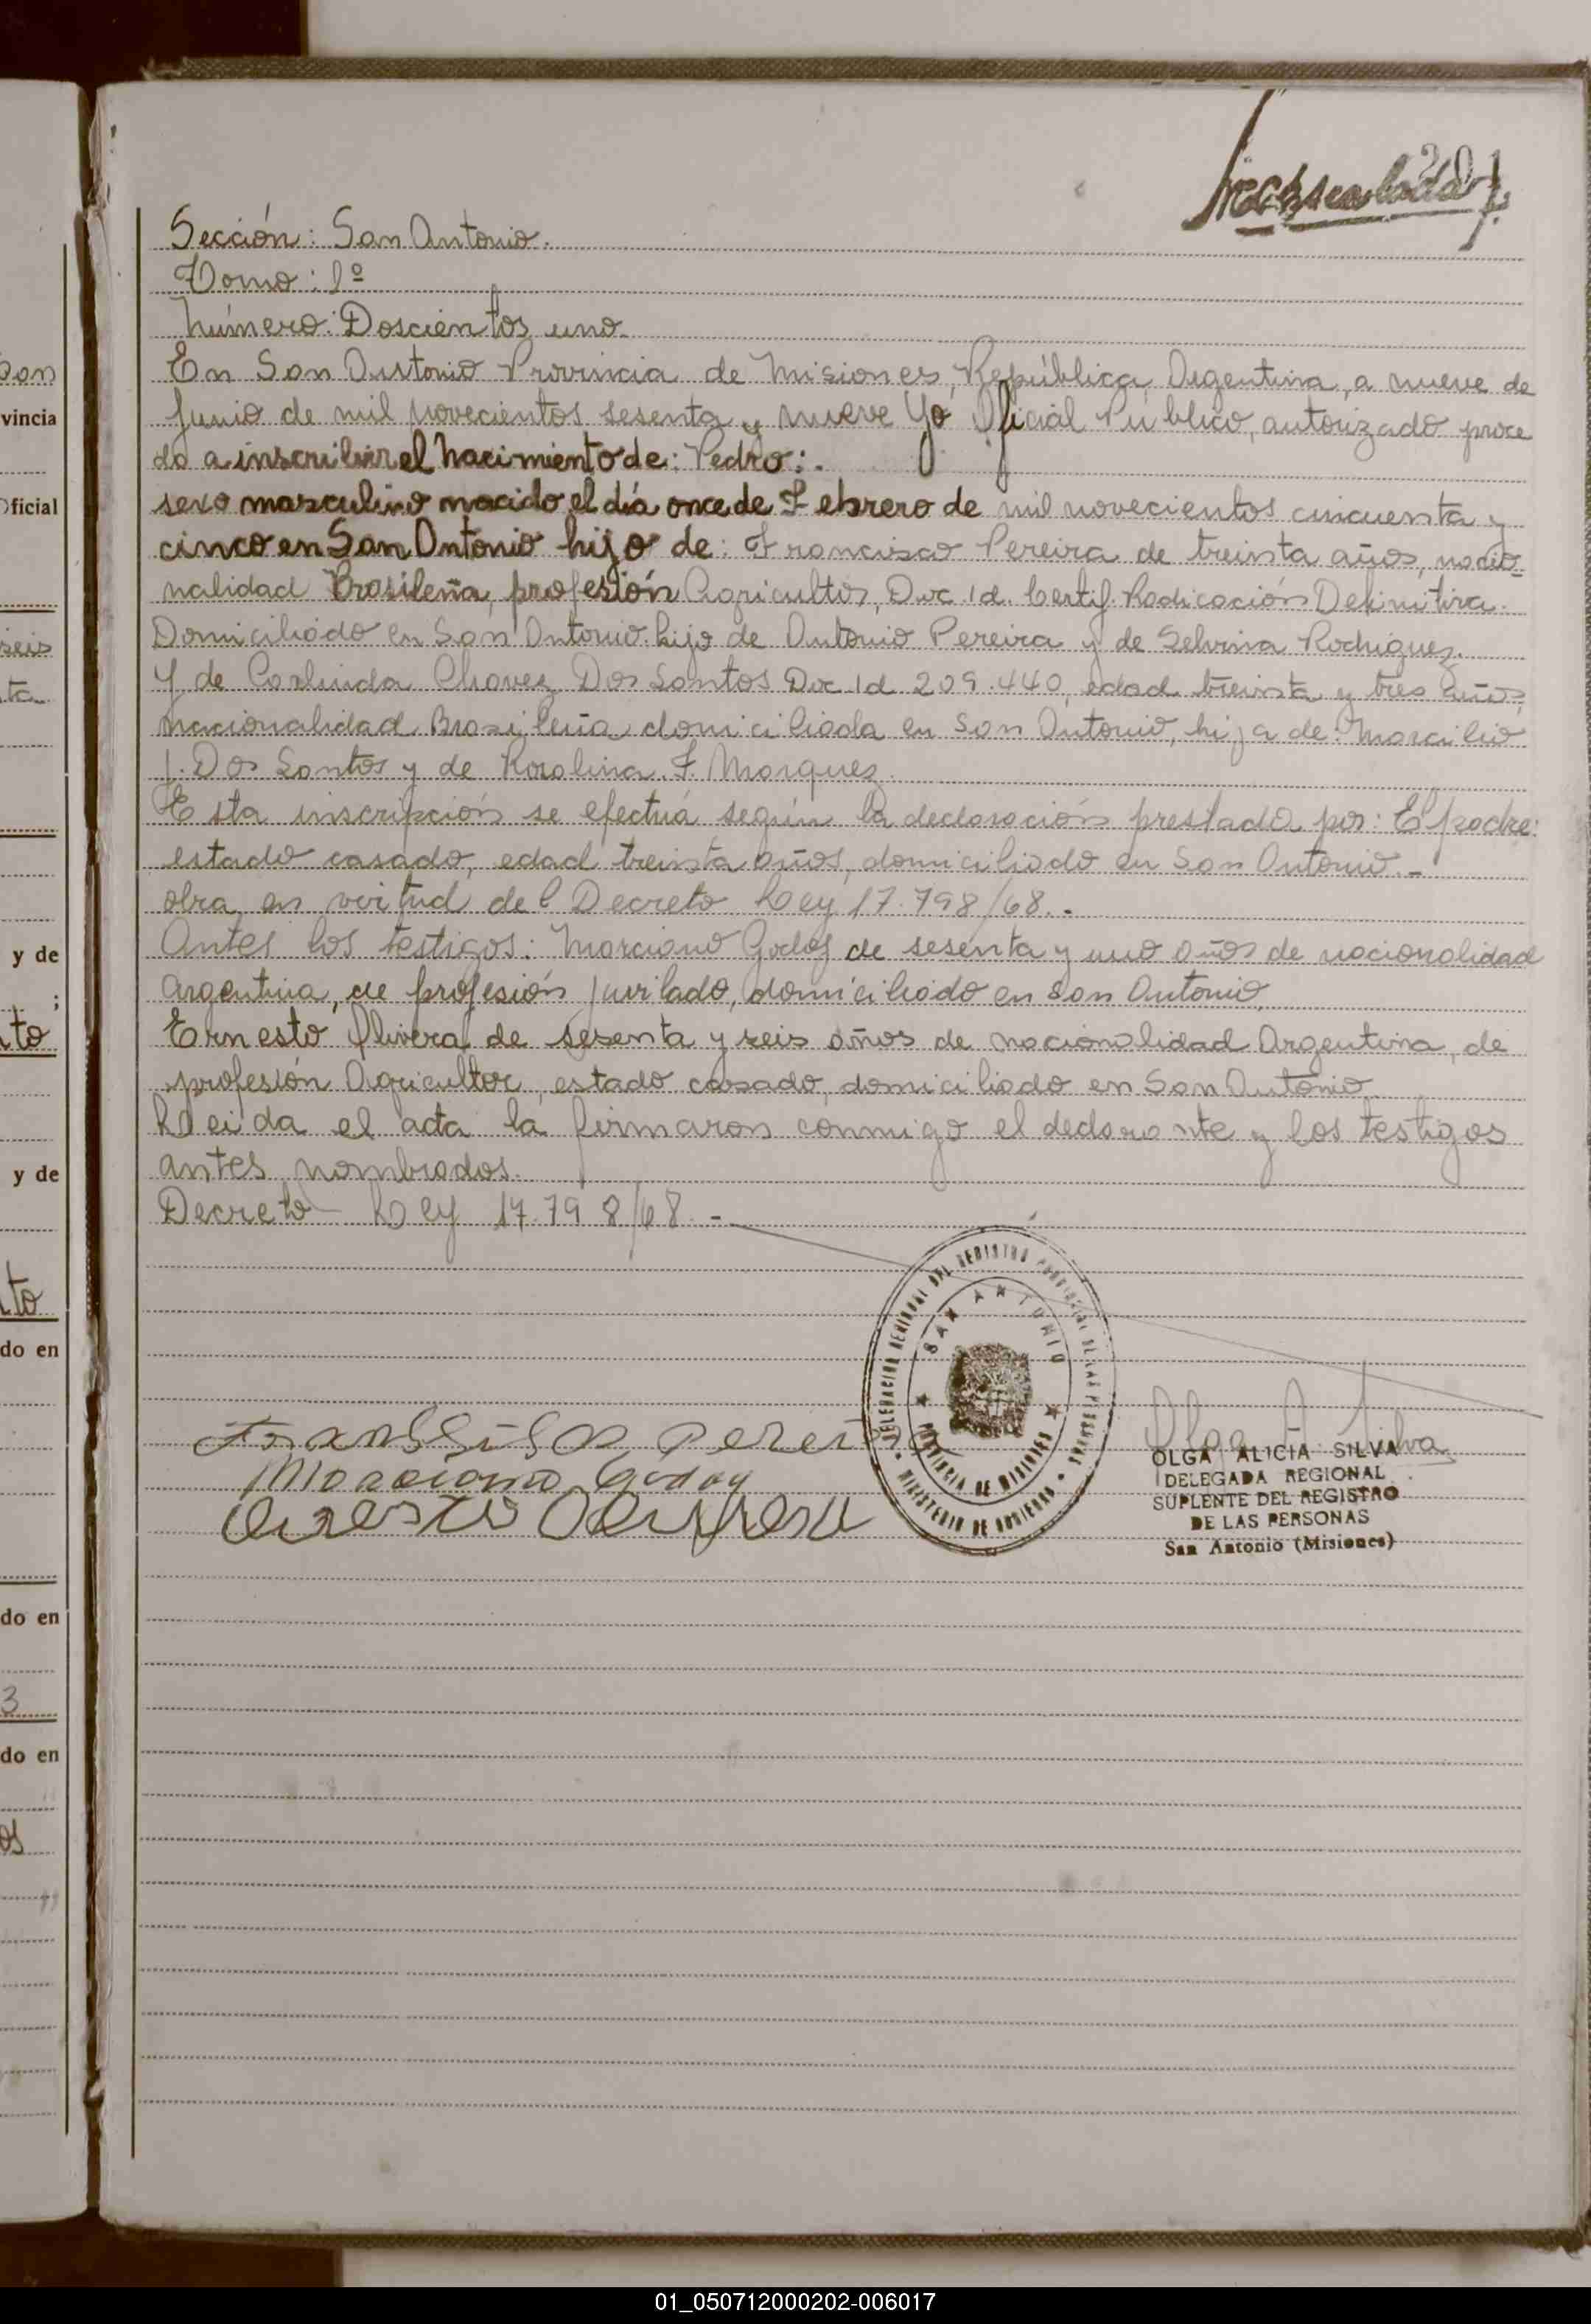 201
Sección: San Antonio.
Tomo: 1º
Número: Doscientos uno.
En San Antonio Provincia de Misiones, República Argentina, a nueve de
Junio de mil novecientos sesenta y nueve Yo Oficial Público, autorizado proce
do a inscribir el Nacimiento de: Pedro:.
sexo masculino nacido el día once de Febrero de mil novecientos cincuenta y
cinco en San Antonio hijo de: Francisco Pereira de treinta años, nacio
nalidad Brasileña, profesión Agricultor, Doc. Id. Certif. Radicación Definitiva.
Domiciliado en San Antonio. hijo de Antonio Pereira y de Selvina Rodriguez.
Y de Carlinda Chavez Dos Santos Doc. Id 209.440, edad treinta y tres años,
nacionalidad Brasileña domiciliada en San Antonio, hija de: Marcilio
J. Dos Santos y de Rosalina F. Marquez.
Esta inscripción se efectuá según la declaración prestada por: El padre:
estado casado, edad treinta años, domiciliado en San Antonio.-
obra en virtud del Decreto Ley 17.798/68.-
Antes los testigos: Marciano Godoy de sesenta y uno años de nacionalidad
Argentina, de profesión juvilado, domiciliado en San Antonio,
Ernesto Olivera de sesenta y seis años de nacionalidad Argentina, de
profesión Agricultor, estado casado, domiciliado en San Antonio.
Leida el acta la firmaron conmigo el declarante y los testigos
antes nombrados.
Decreto - Ley 17.798/68.-
DELEGACION REGIONAL DEL REGISTRO PROVINCIAL DE LAS PERSONAS
SAN ANTONIO
PROVINCIA DE MISIONES
MINISTERIO DE GOBIERNO
Marciano Godoy
Olga A. Silva
OLGA ALICIA SILVA
DELEGADA REGIONAL
SUPLENTE DEL REGISTRO
DE LAS PERSONAS
San Antonio (Misiones)
vincia
Oficial
seis
ta
y de
to
y de
to
do en
do en
3
do en
os
01_050712000202-006017